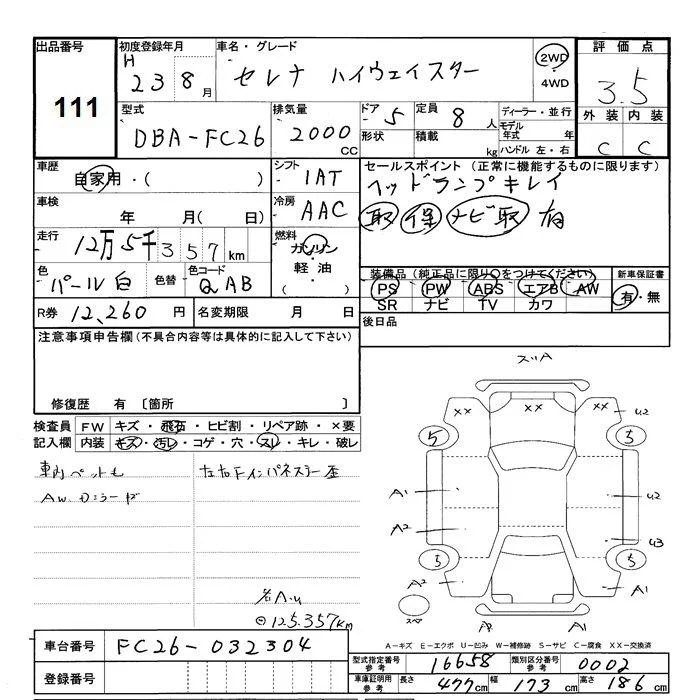 出品番号 111
初度登録年月 H 23 8月
車名・グレード セレナ ハイウェイスター
2WD ・ 4WD
評価点 3.5
外装 内装
C C
型式 DBA-FC26
排気量 2000 CC
ドア 5 定員 8人
形状 積載 kg
ディーラー・並行
モデル年式 年
ハンドル 左・右
車歴 自家用・( )
シフト 1AT
車検 年 月( 日)
冷房 AAC
走行 12万5千357km
燃料 ガソリン・軽油・( )
色 パール白 色替 色コード QAB
R券 12,260円 名変期限 月 日
セールスポイント (正常に機能するものに限ります)
ヘッドランプキレイ
取 保 ナビ取 有
装備品 (純正品に限り○をつけてください) 新車保証書
PS PW ABS エアB AW 有・無
SR ナビ TV カワ
後日品
注意事項申告欄 (不具合内容等は具体的に記入して下さい)
修復歴 有 〔箇所 〕
検査員記入欄
FW キズ・飛石・ヒビ割・リペア跡・×要
内装 キズ・汚レ・コゲ・穴・スレ・キレ・破レ
左右Fインパネステー歪
⊖125.357km
スリA
XX XX U2
5 5
A1 U2
A2 U3
5 5
A2 A1
A2 A1
A-キズ E-エクボ U-凹み W-補修跡 S-サビ C-腐食 XX-交換済
車台番号 FC26-032304
登録番号
型式指定番号参考 16658 類別区分番号参考 0002
車庫証明用参考 長さ 477cm 幅 173cm 高さ 186cm